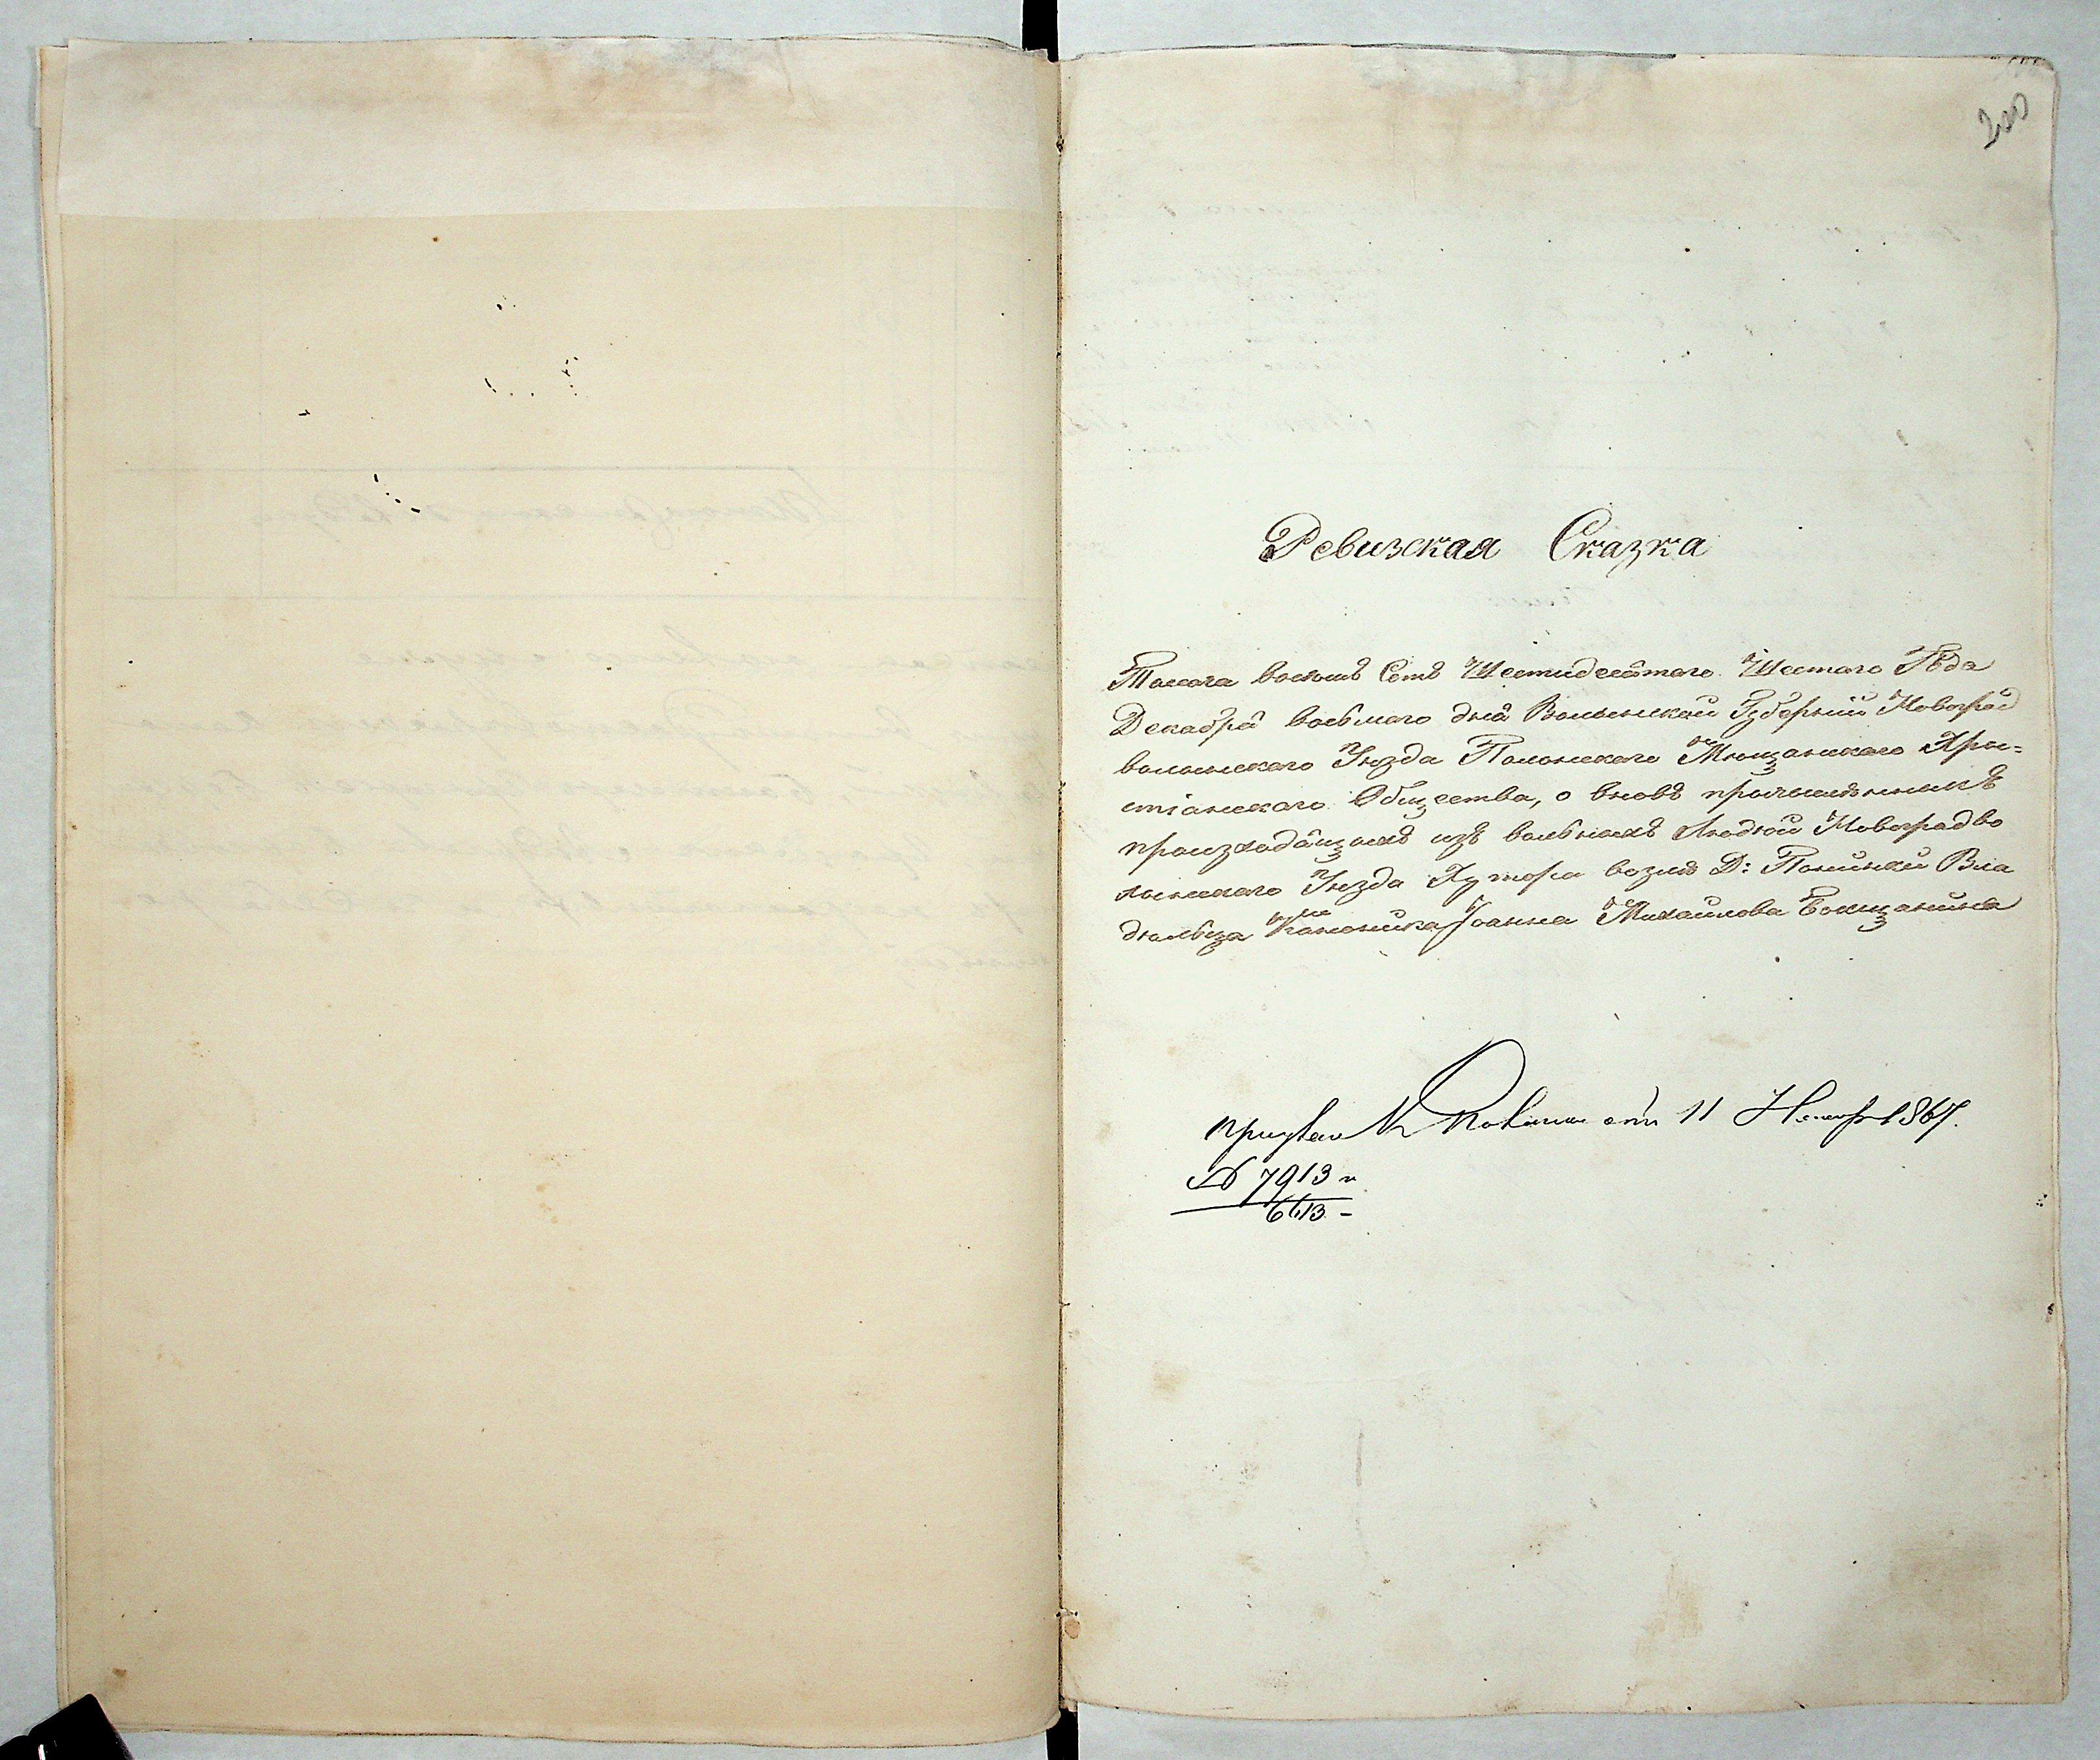 200
Ревизская Сказка
Тысяча восемь Сотъ Шестидесятаго Шестаго Года
Декабря восьмаго дня Волынской Губерніи Новоград
волынскаго Уезда Полонскаго Мещанскаго Хри=
стіанскаго Общества, о вновь причисленныхъ
произходящихъ изъ вольныхъ людей Новоградво
лынскаго Уезда Хутора возле Д: Понинки Вла
дельца Каноника Іоанна Михайлова
при от 11 1867.
№ 7913